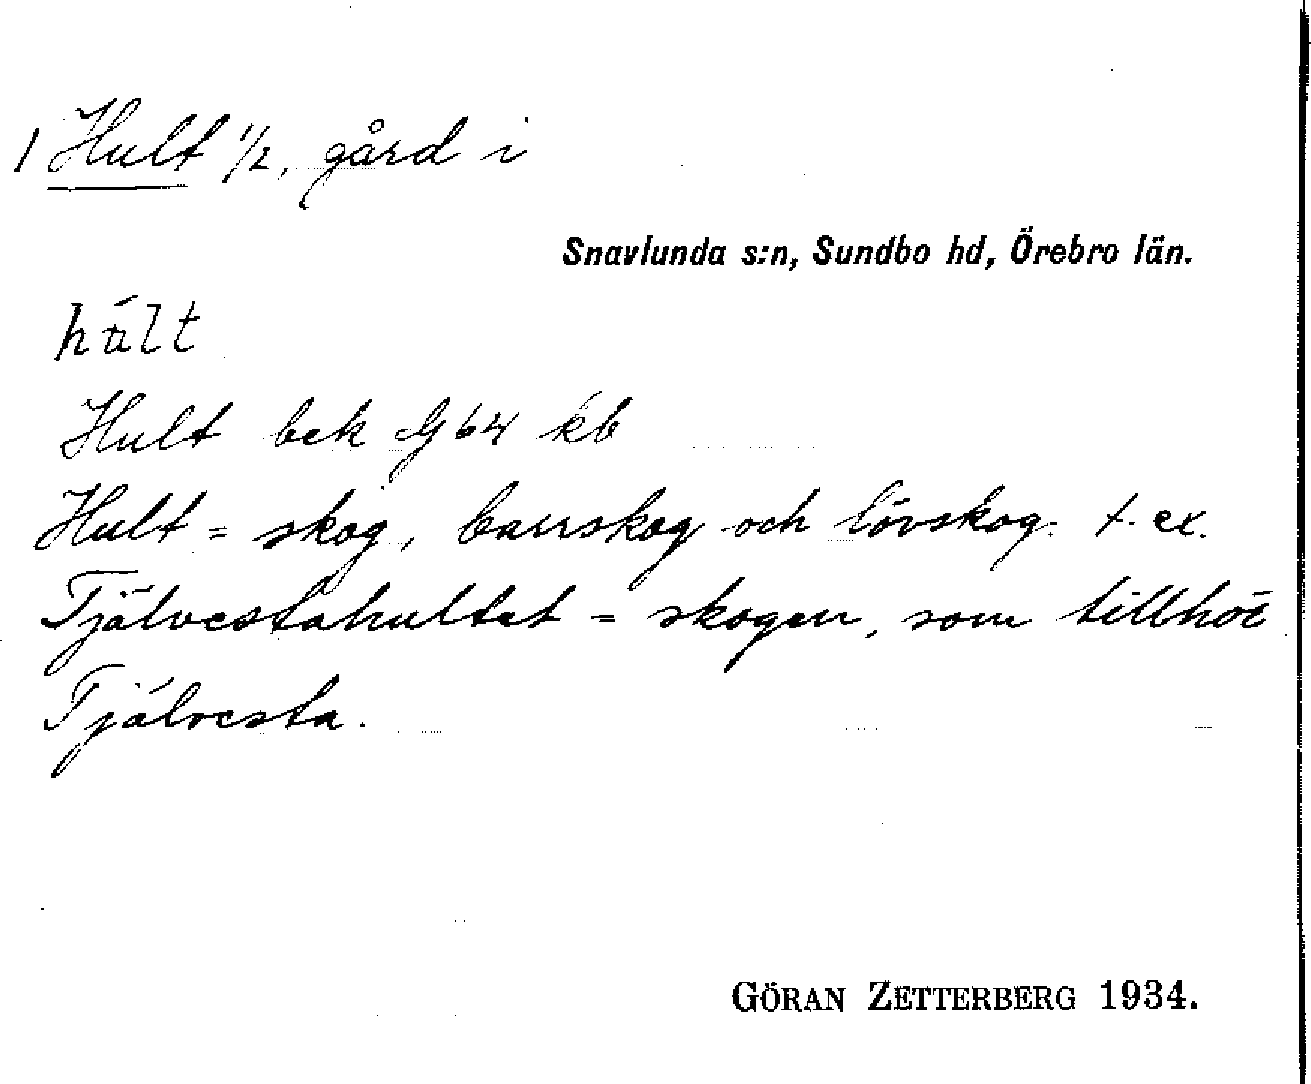 1 Hult 1/2, gård i
Snavlunda s:n, Sundbo hd, Örebro län.
hált
Hult bek G64 kb
Hult = skog, barrskog och lövskog. t. ex.
Tjälvestahultet = skogen, som tillhör
Tjälvesta.
GÖRAN ZETTERBERG 1934.